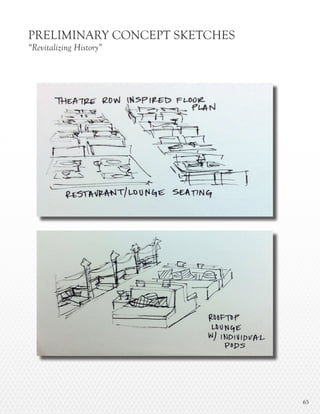 PRELIMINARY CONCEPT SKETCHES
"Revitalizing History"
THEATRE ROW INSPIRED FLOOR
PLAN
RESTAURANT/LOUNGE SEATING
ROOFTOP
LOUNGE
W/ INDIVIDUAL
PODS
65